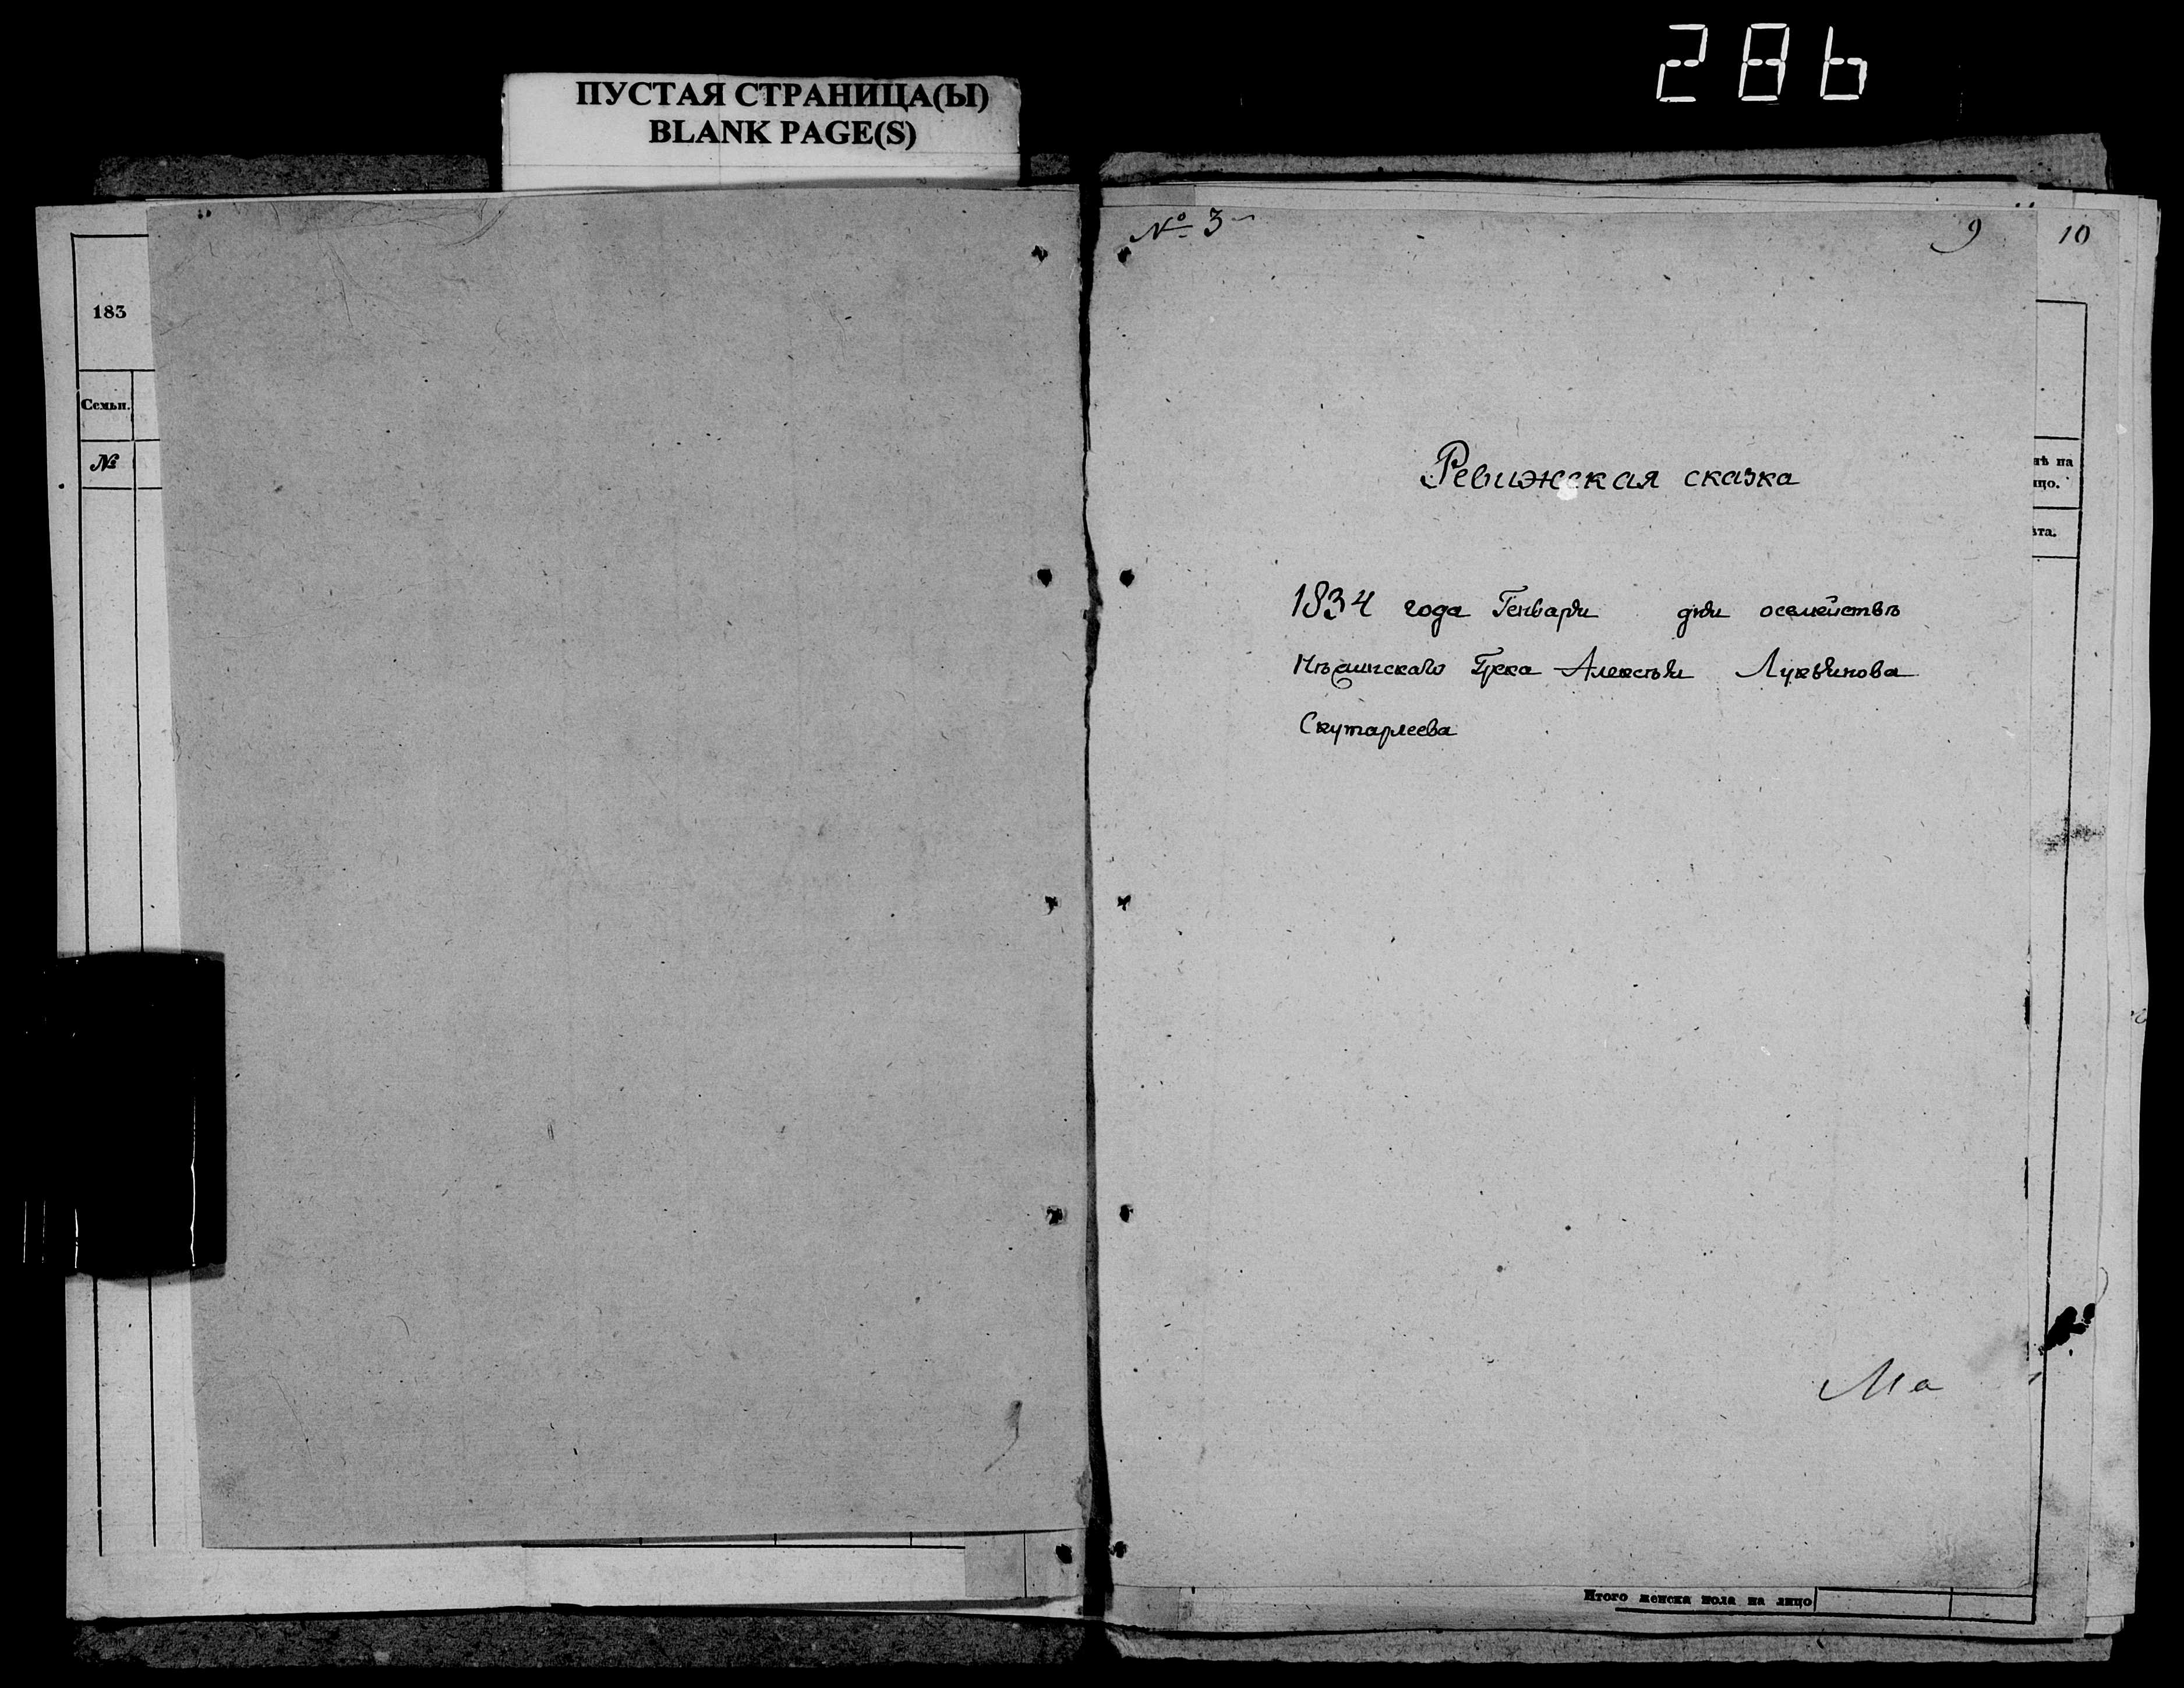 286
ПУСТАЯ СТРАНИЦА(Ы)
BLANK PAGE(S)
183
Семьи.
№
№ 3
9
10
Ревижская сказка
1834 года Генваря дня осемействѣ
Нѣжинскаго Грека Алексѣя Лукьянова
Скутарлеева
нѣ на
ицо.
ѣта.
Ма
Итого женска пола на лицо